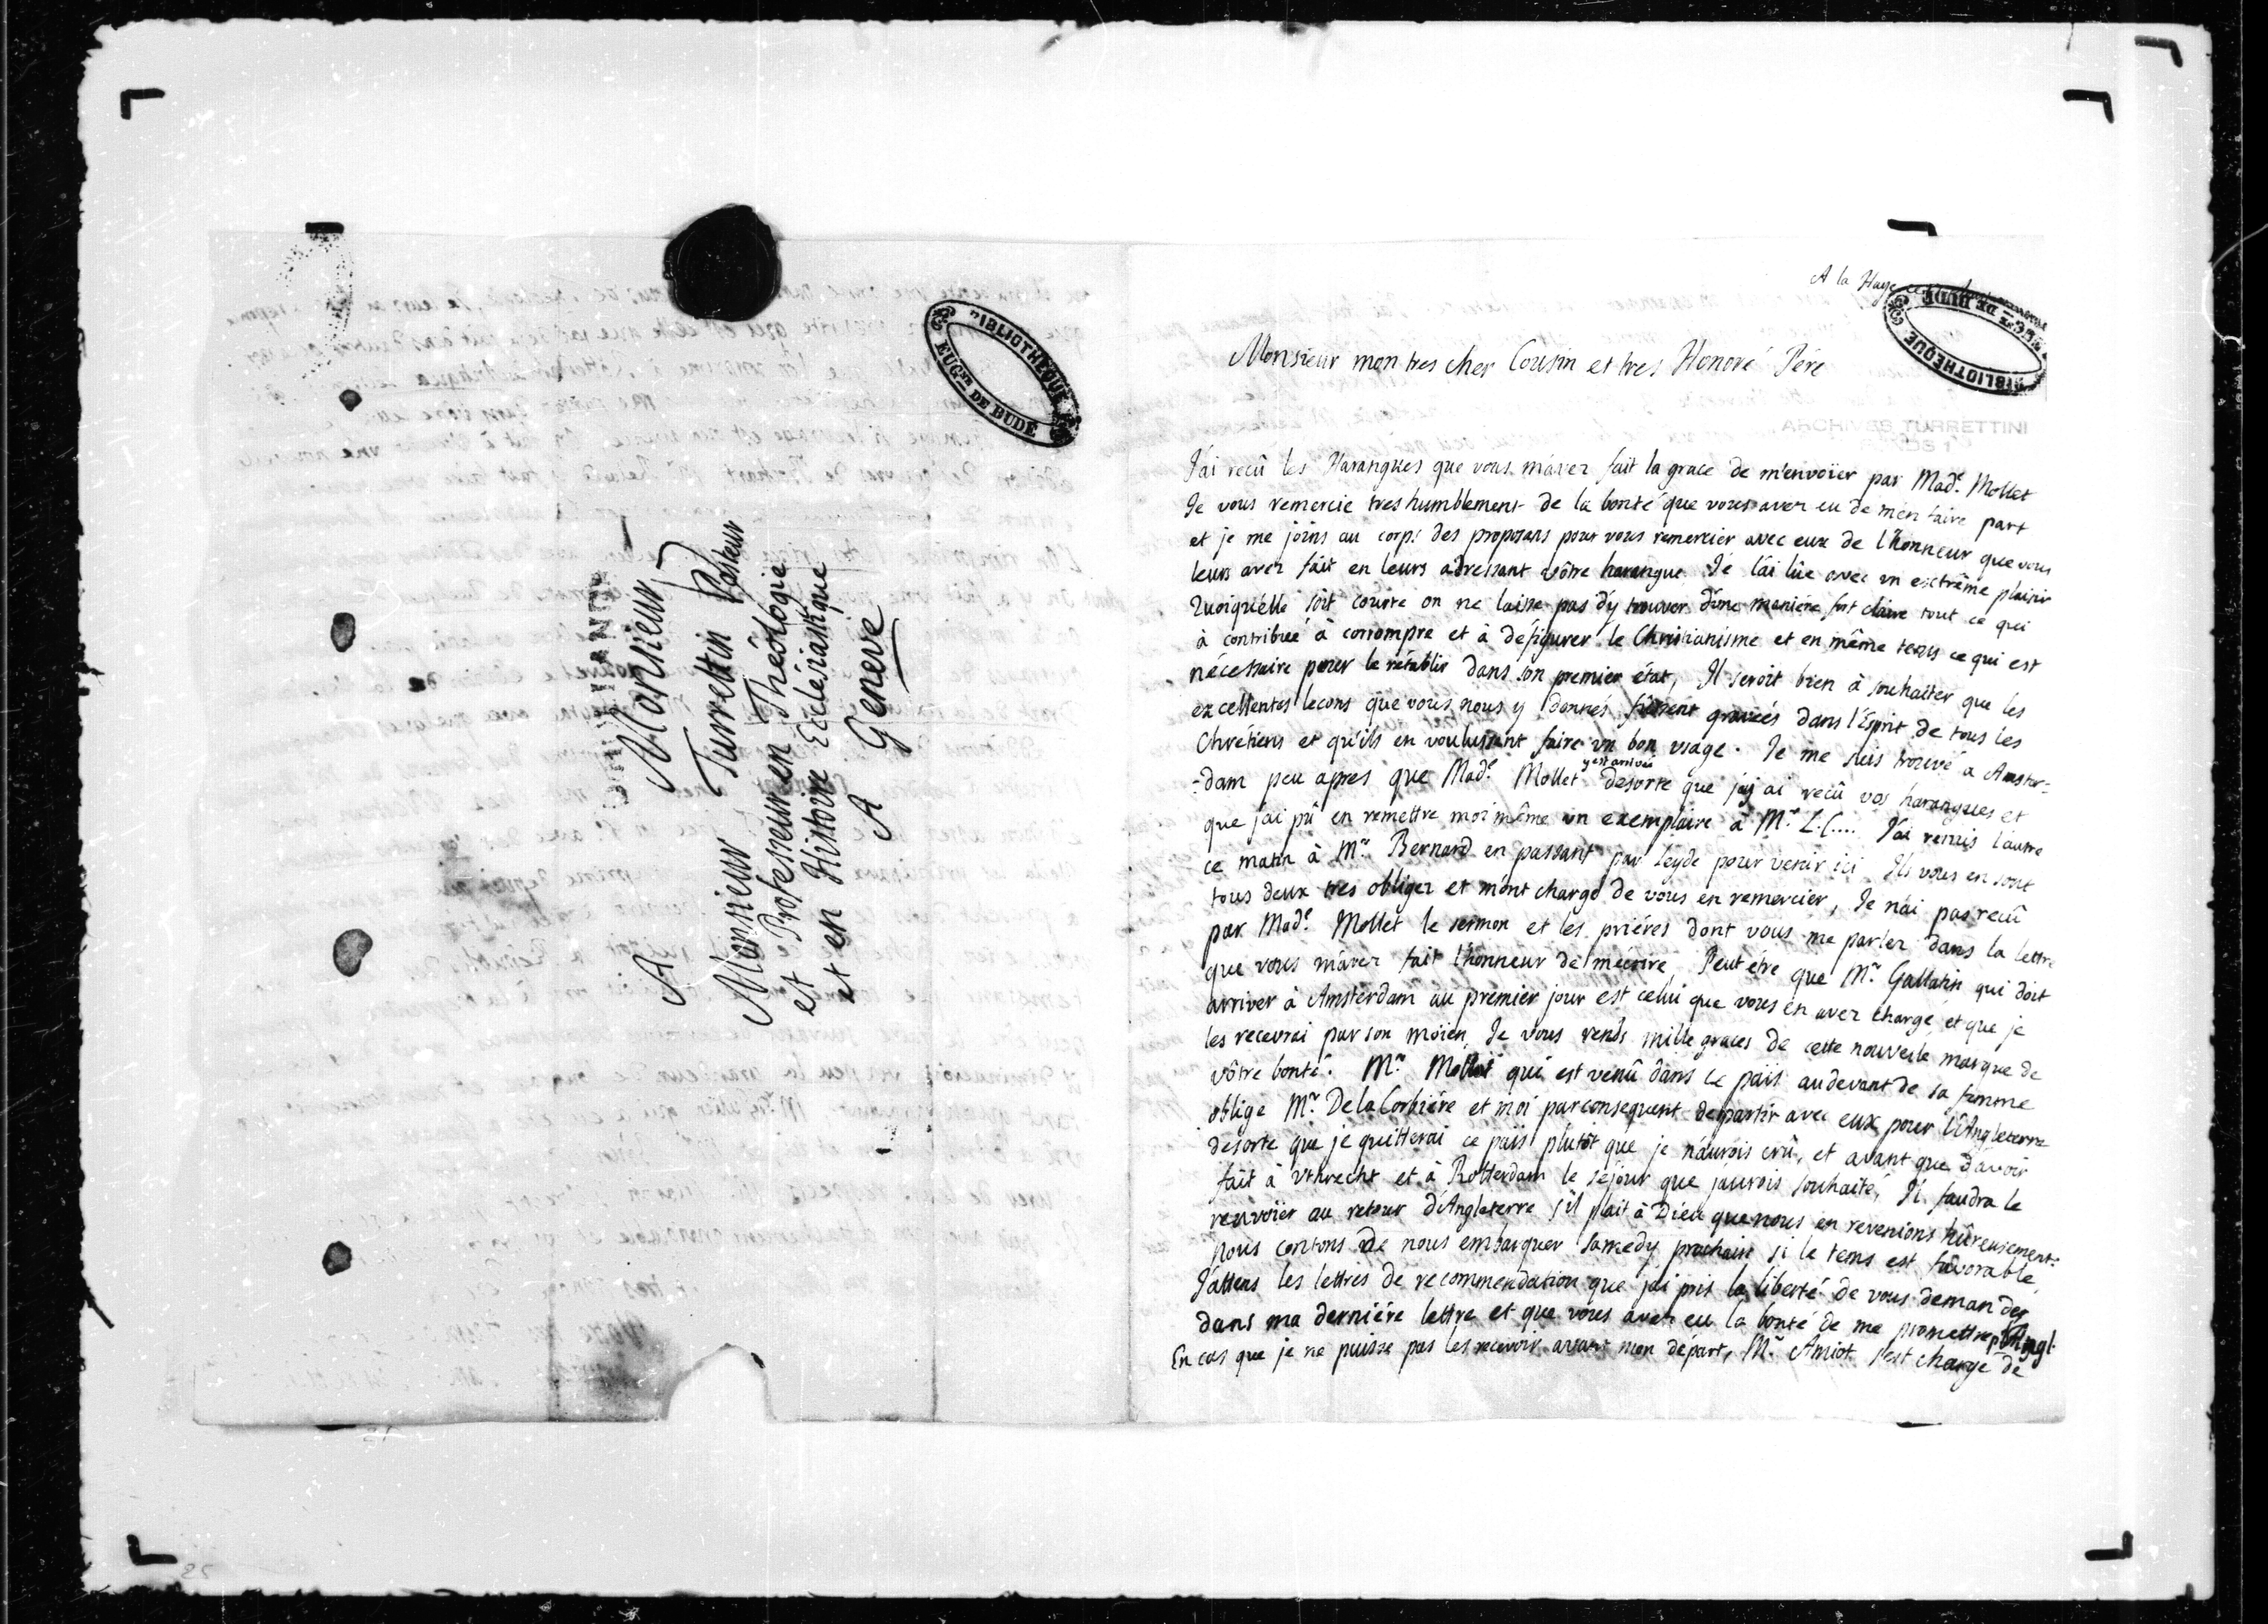 A
Monsieur
Monsieur Turrettin Pasteur
et Professeur en Théologie
et en Histoire Ecclésiastique
A Geneve
BIBLIOTHEQUE
EUGNE DE BUDÉ
A la Haye
BIBLIOTHEQUE
DE BUDÉ
ARCHIVES TURRETTINI
Monsieur mon tres cher Cousin et tres Honoré Pére
J'ai reçû les Harangues que vous m'avez fait la grace de m'envoïer par Made. Mollet
Je vous remercie tres humblement de la bonté que vous avez eu de m'en faire part
et je me joins au corps des proposans pour vous remercier avec eux de l'honneur que vous
leurs avez fait en leurs adressant vôtre harangue. Je l'ai lûe avec un extrême plaisir
Quoiqu'elle soit courte on ne laisse pas d'y trouver d'une maniére fort claire tout ce qui
à contribué à corrompre et à défigurer le Christianisme et en même tems ce qui est
nécessaire pour le rétablir dans son premier état, Il seroit bien à souhaiter que les
excellentes lecons que vous nous y donnés fussent gravées dans l'Esprit de tous les
Chrétiens et qu'ils en voulussent faire un bon usage. Je me suis trouvé a Amster=
=dam peu apres que Made. Mollet y est arrivée desorte que j'y ai reçû vos harangues et
que j'ai pû en remettre moi même un exemplaire à Mr. L. C.... J'ai remis l'autre
ce matin à Mr. Bernard en passant par Leyde pour venir ici. Ils vous en sont
tous deux tres obligez et m'ont chargé de vous en remercier, Je n'ai pas reçû
par Made. Mollet le sermon et les priéres dont vous me parlez dans la lettre
que vous m'avez fait l'honneur de m'écrire, Peut être que Mr. Gallatin qui doit
arriver à Amsterdam au premier jour est celui que vous en avez chargé et que je
les recevrai par son moïen, Je vous rends mille graces de cette nouvelle marque de
vôtre bonté. Mr. Mollet qui est venû dans ce païs audevant de sa femme
oblige Mr. De la Corbiére et moi parconsequent de partir avec eux pour l'Angleterre
desorte que je quitterai ce païs plutôt que je n'aurois crû, et avant que d'avoir
fait à Vthrecht et à Rotterdam le séjour que j'aurois souhaité, Il faudra le
renvoïer au retour d'Angleterre s'il plait à Dieu que nous en revenions hûreusement.
Nous contons de nous embarquer samedy prochain si le tems est favorable,
J'attens les lettres de recommendation que j'ai pris la liberté de vous demander
dans ma derniére lettre et que vous avez eu la bonté de me promettre pr. l'Angl.
En cas que je ne puisse pas les recevoir avant mon départ, Mr. Amiot s'est chargé de